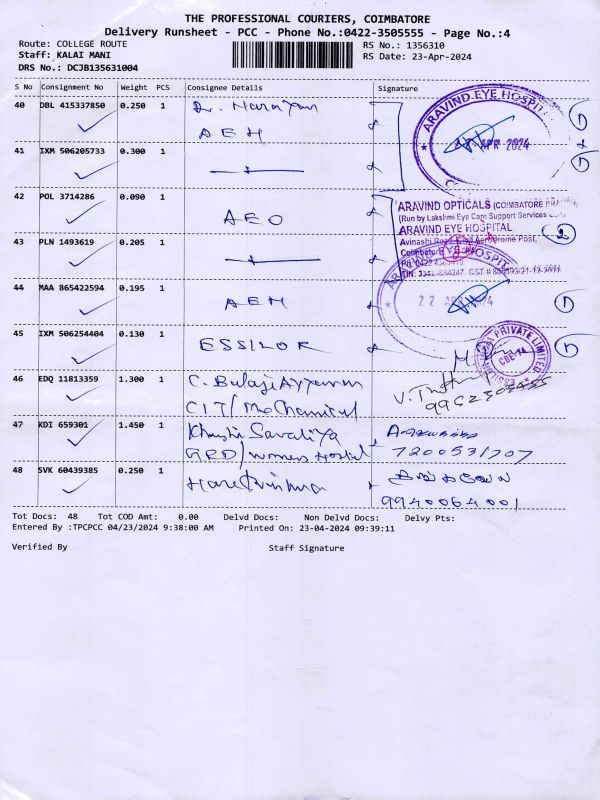 THE PROFESSIONAL COURIERS, COIMBATORE
Delivery Runsheet - PCC - Phone No.:0422-3505555 - Page No.:4
Route: COLLEGE ROUTE
Staff: KALAI MANI
DRS No.: DCJB135631004
RS No.: 1356310
RS Date: 23-Apr-2024
S No Consignment No Weight PCS Consignee Details Signature
40 DBL 415337850 0.250 1 Dr. Narayan
AEH
ARAVIND EYE HOSPIT
APR 2024
1
41 IXM 506205733 0.300 1
1
42 POL 3714286 0.090 1 AEO
ARAVIND OPTICALS (COIMBATORE
(Run by Lakshmi Eye Care Support Services
ARAVIND EYE HOSPITAL
2
43 PLN 1493619 0.205 1
Avinashi Road, Aerodrome Post,
Coimbatore
44 MAA 865422594 0.195 1 AEH
HOSPIT
22 APR 2024
1
45 IXM 506254404 0.130 1 ESSILOR
PRIVATE LIMITED
CBE-14
1
46 EDQ 11813359 1.300 1 C. Balaji Ayyanan
CIT/Mechanical
47 KDI 659301 1.450 1 Khushi Savaliya
GRD/womens Hostel
7200531707
48 SVK 60439385 0.250 1 Harekrishna
9940064001
Tot Docs: 48 Tot COD Amt: 0.00 Delvd Docs: Non Delvd Docs: Delvy Pts:
Entered By :TPCPCC 04/23/2024 9:38:00 AM Printed On: 23-04-2024 09:39:11
Verified By Staff Signature